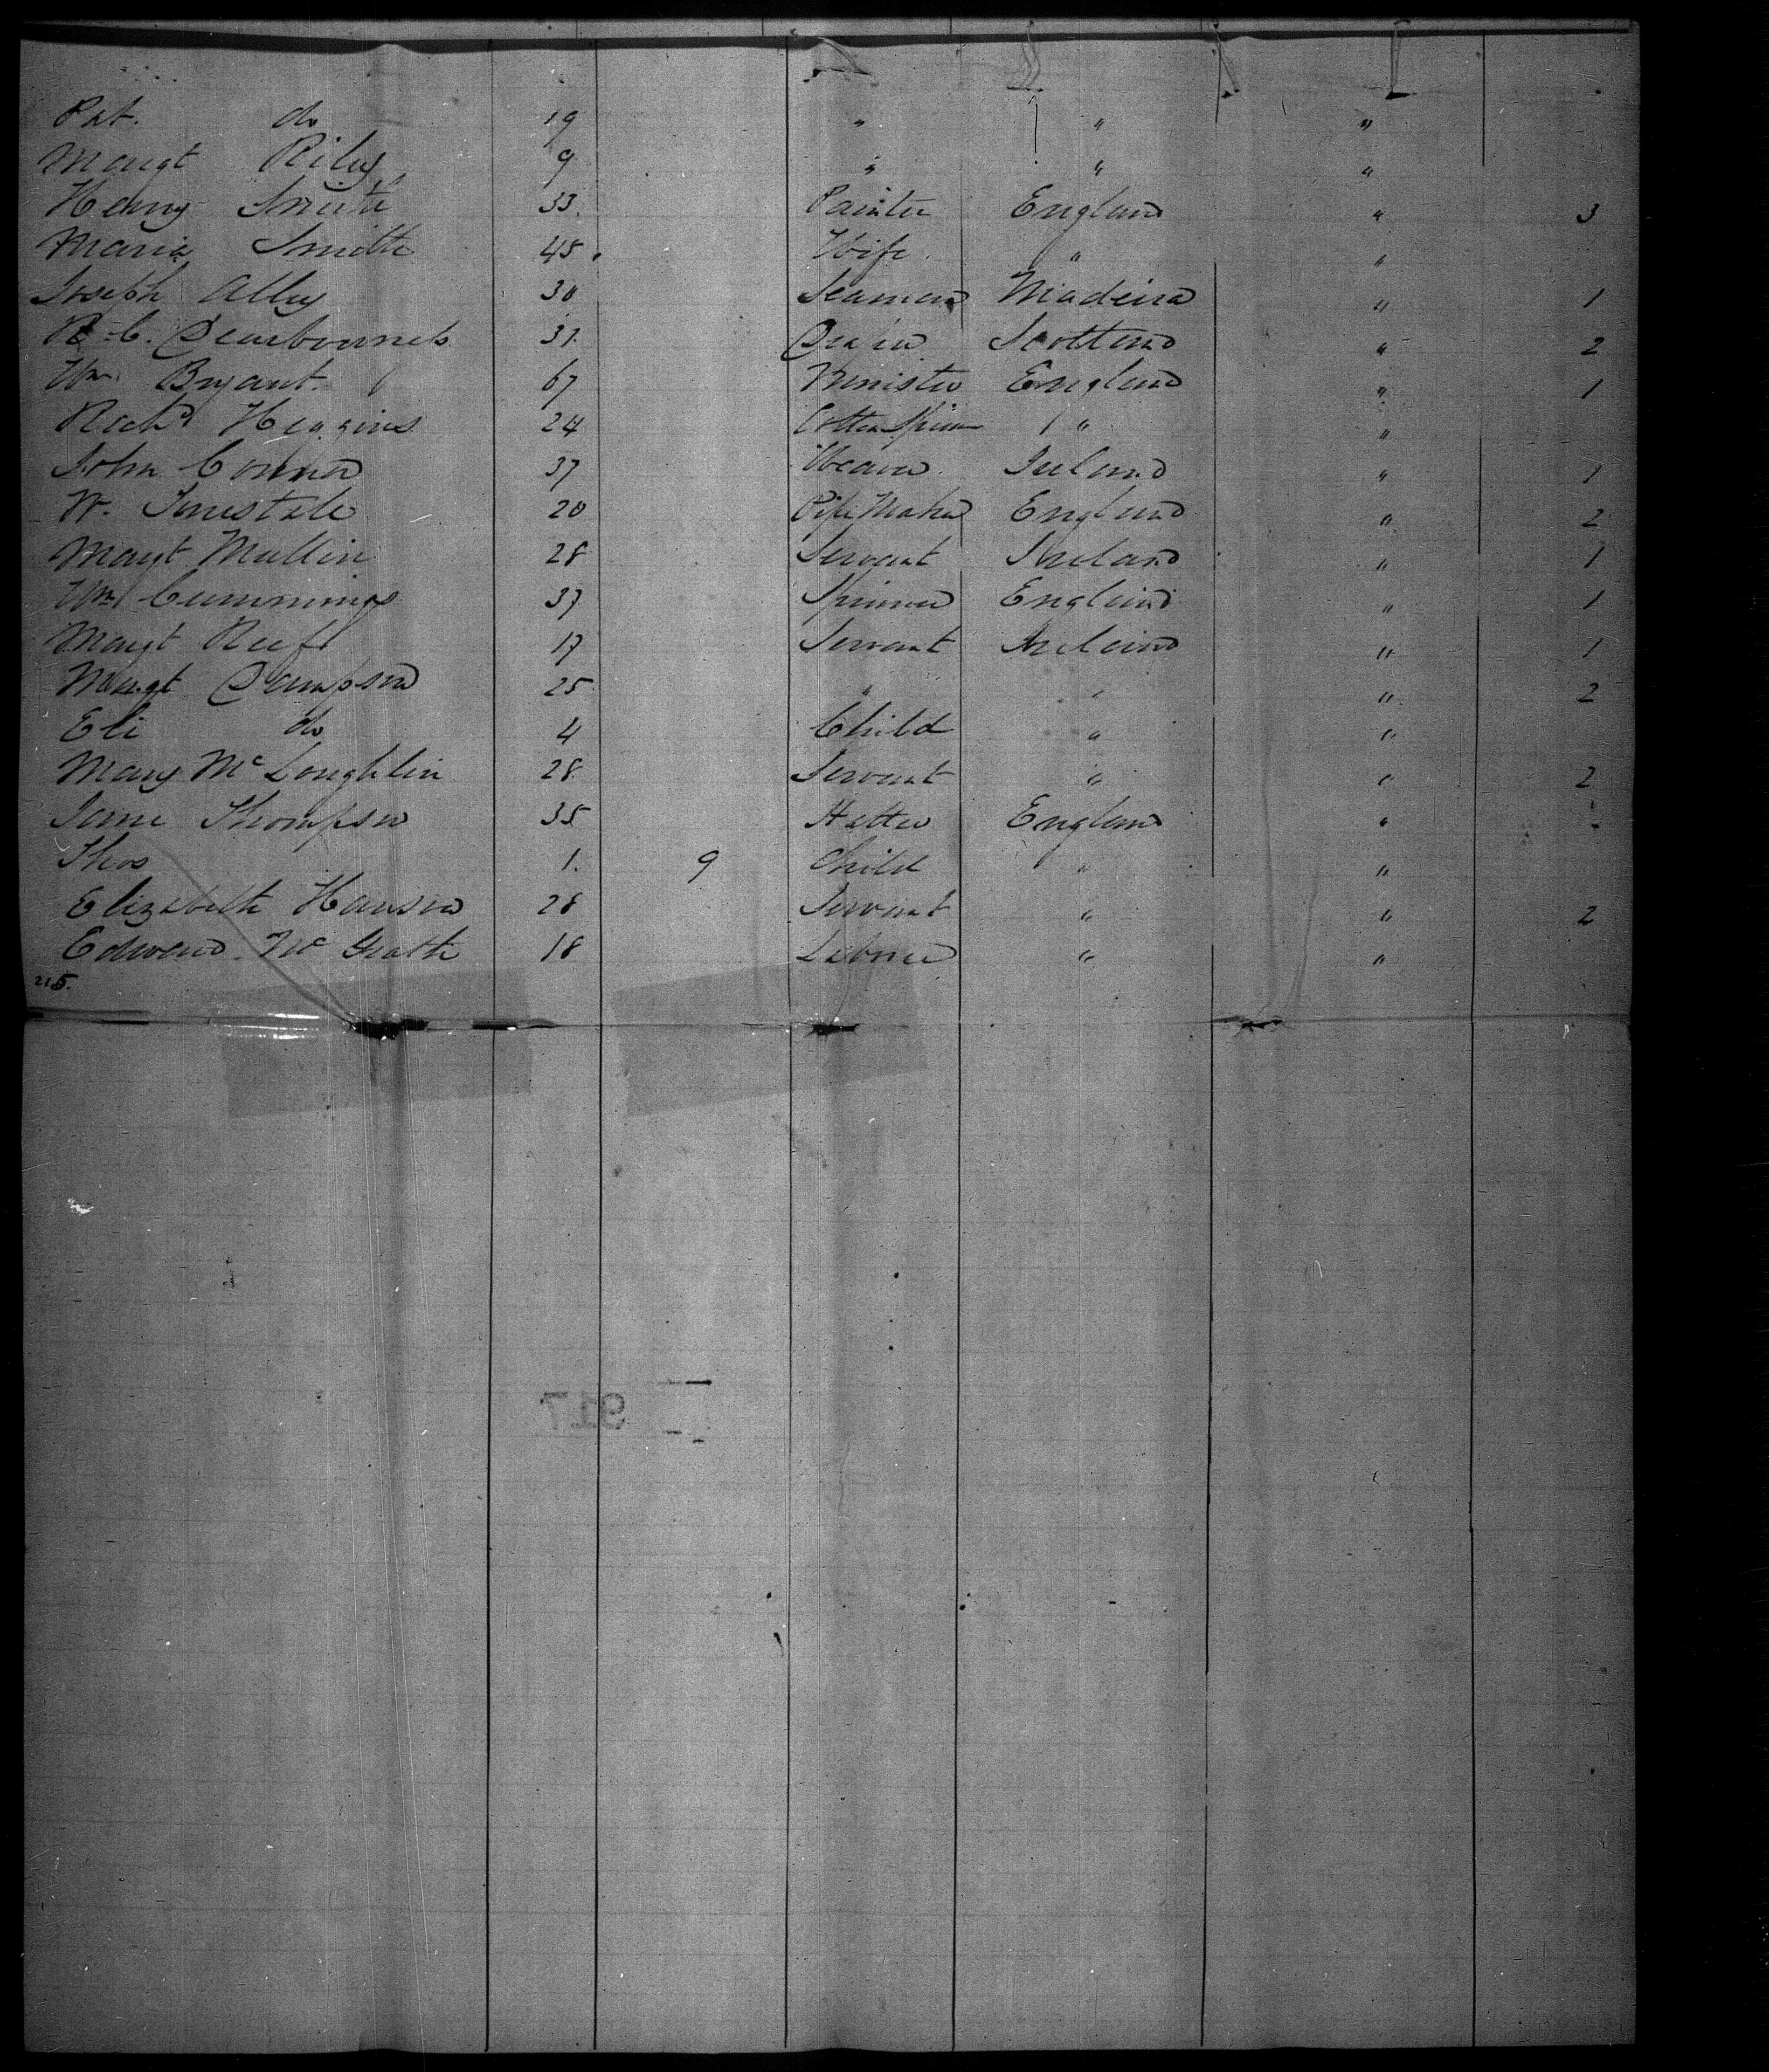 Pat. do 19 " " "
Margt Riley 9 " " "
Henry Smith 33 Painter England " 3
Maria Smith 45 Wife " "
Joseph Alley 30 Seaman Madeira " 1
31 Scotland " 2
Wm Bryant 67 Minister England " 1
Richd Higgins 24 Cotton Spinn " "
John Connor 37 Weaver Ireland " 1
W. 20 Pipe Maker England " 2
Margt Mullin 28 Servant Ireland " 1
Wm Cummings 37 Spinner England " 1
Margt 17 Servant Ireland " 1
Margt Dempson 25 " " " 2
Eli do 4 Child " "
Mary McLoughlin 28 Servant " " 2
Jame Thompson 35 Hatter England "
Thos 1 9 Child " "
Elizabeth Hanson 28 Servant " " 2
Edward McGrath 18 Laborer " "
215.
917